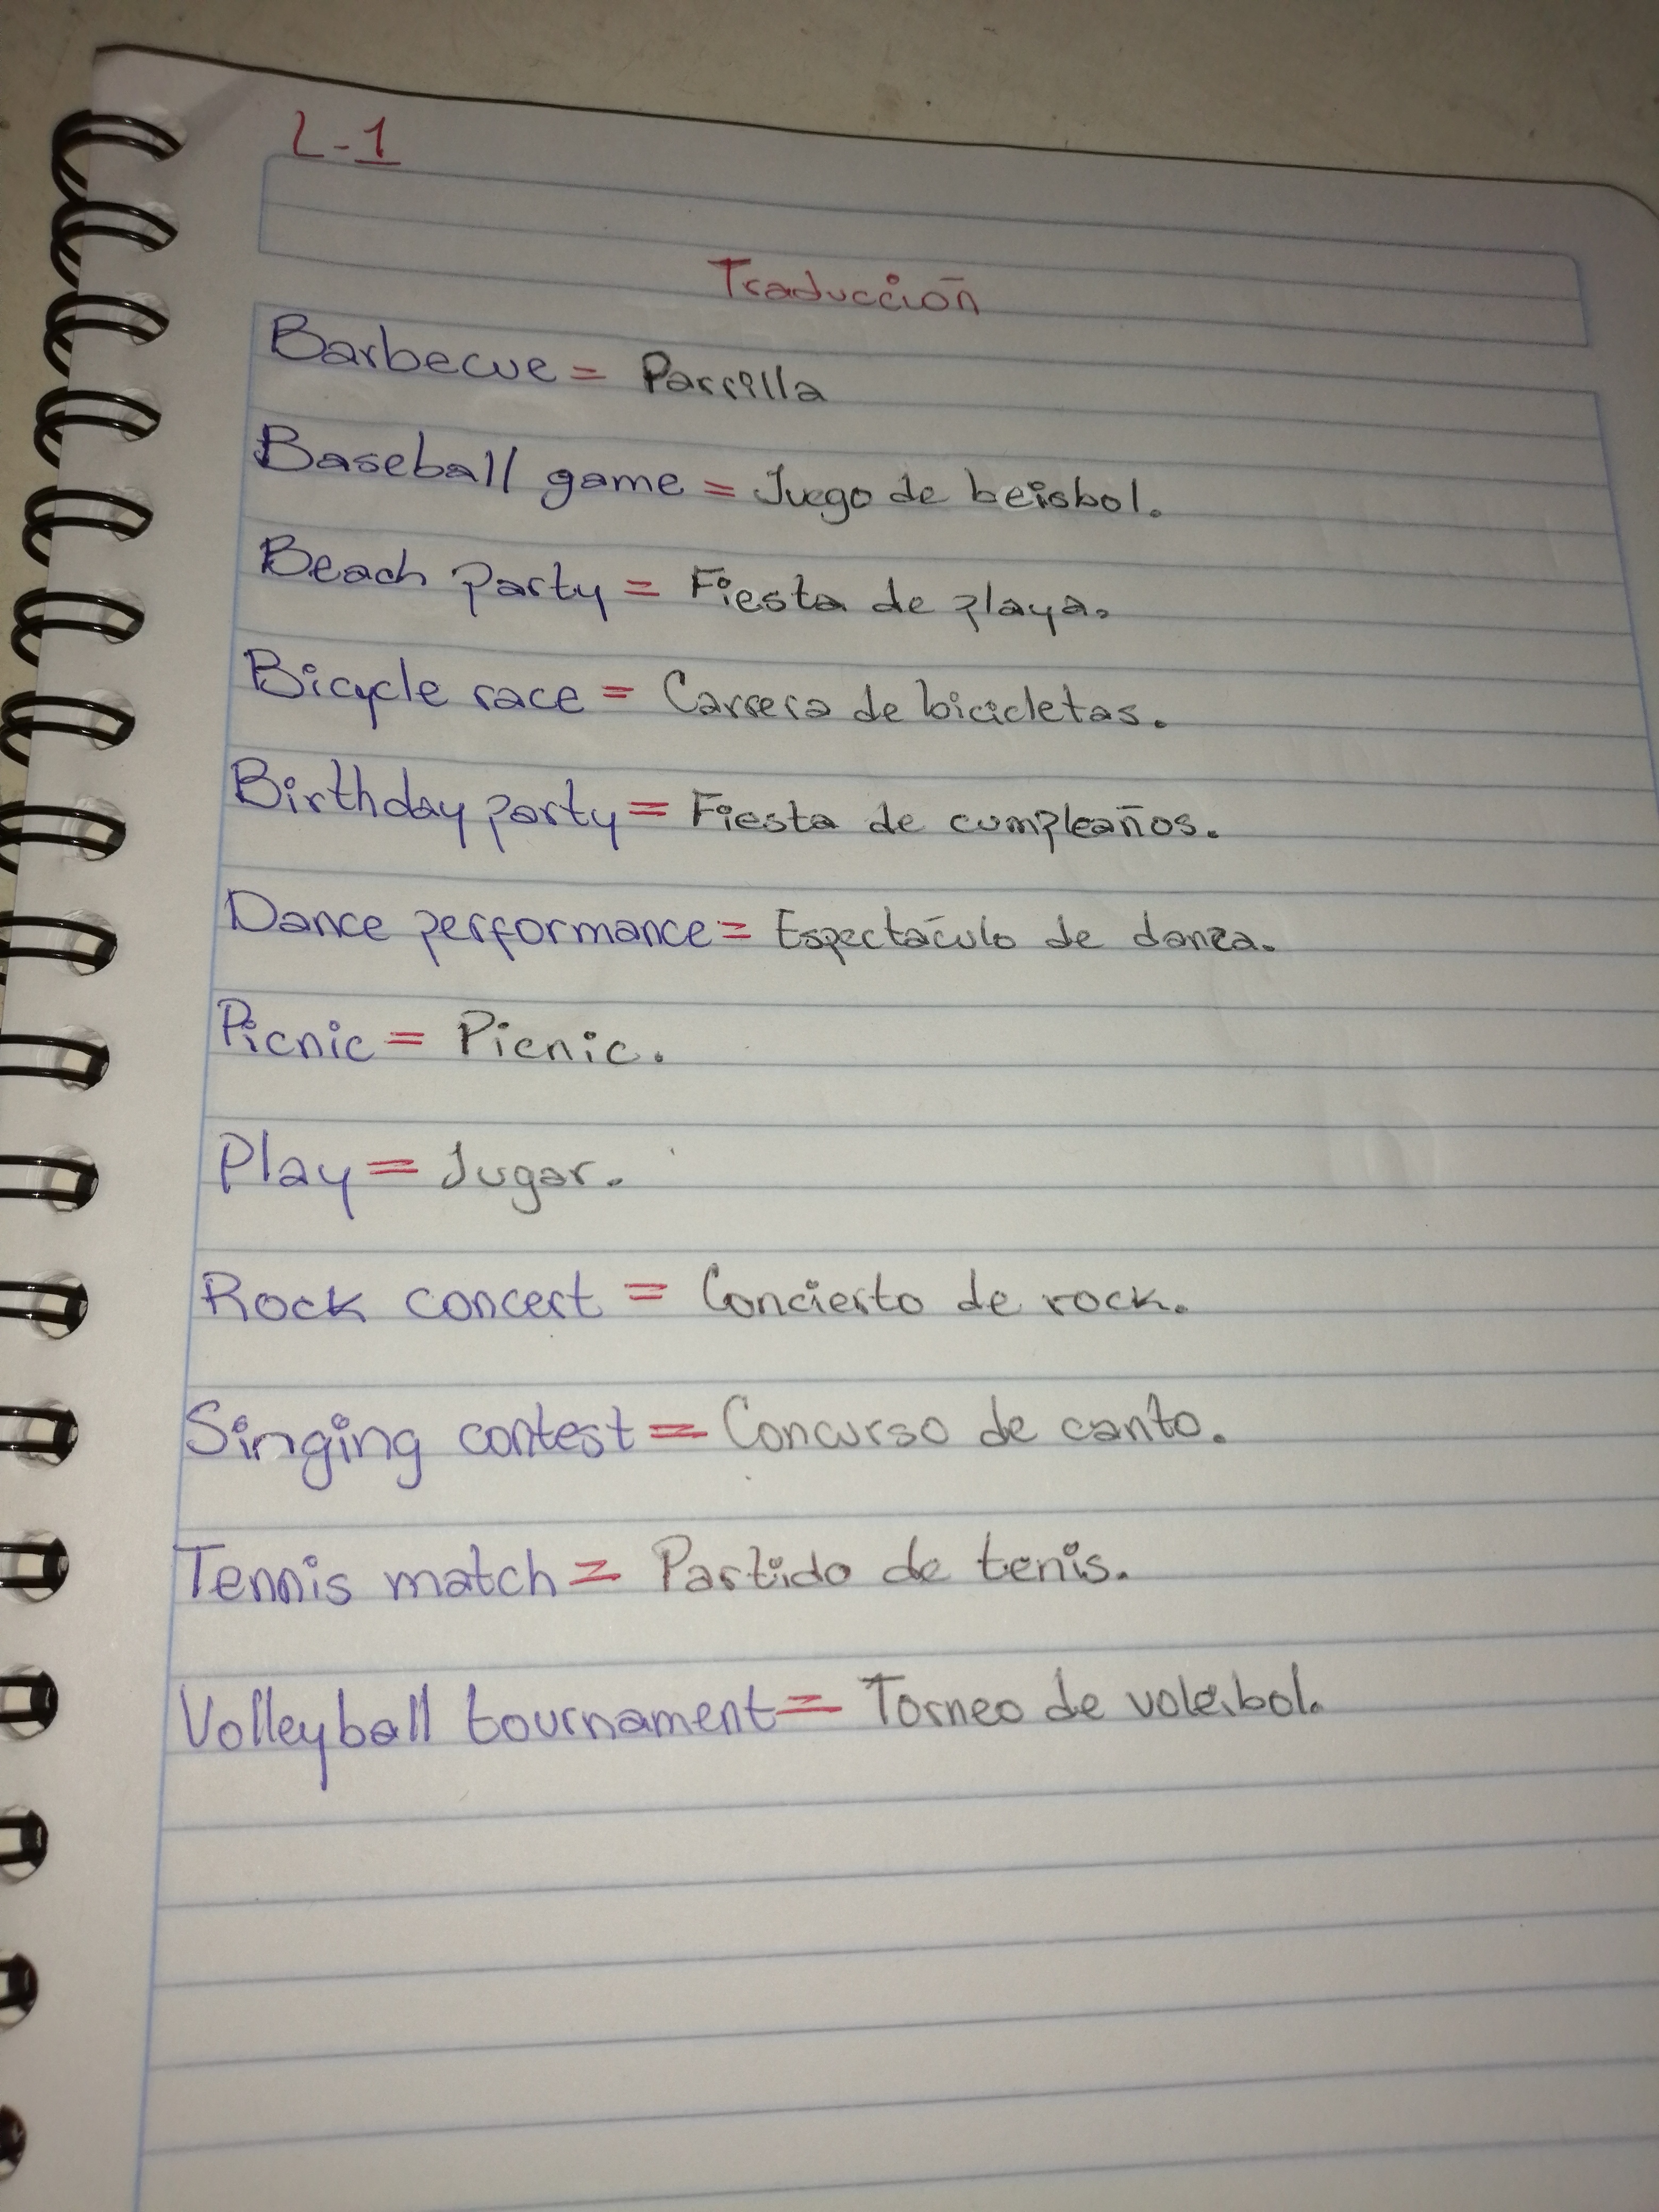 L-1
Traducción
Barbecue = Parrilla
Baseball game = Juego de beisbol.
Beach party = Fiesta de playa.
Bicycle race = Carrera de bicicletas.
Birthday party = Fiesta de cumpleaños.
Dance performance = Espectáculo de danza.
Picnic = Picnic.
Play = Jugar.
Rock concert = Concierto de rock.
Singing contest = Concurso de canto.
Tennis match = Partido de tenis.
Volleyball tournament = Torneo de voleibol.